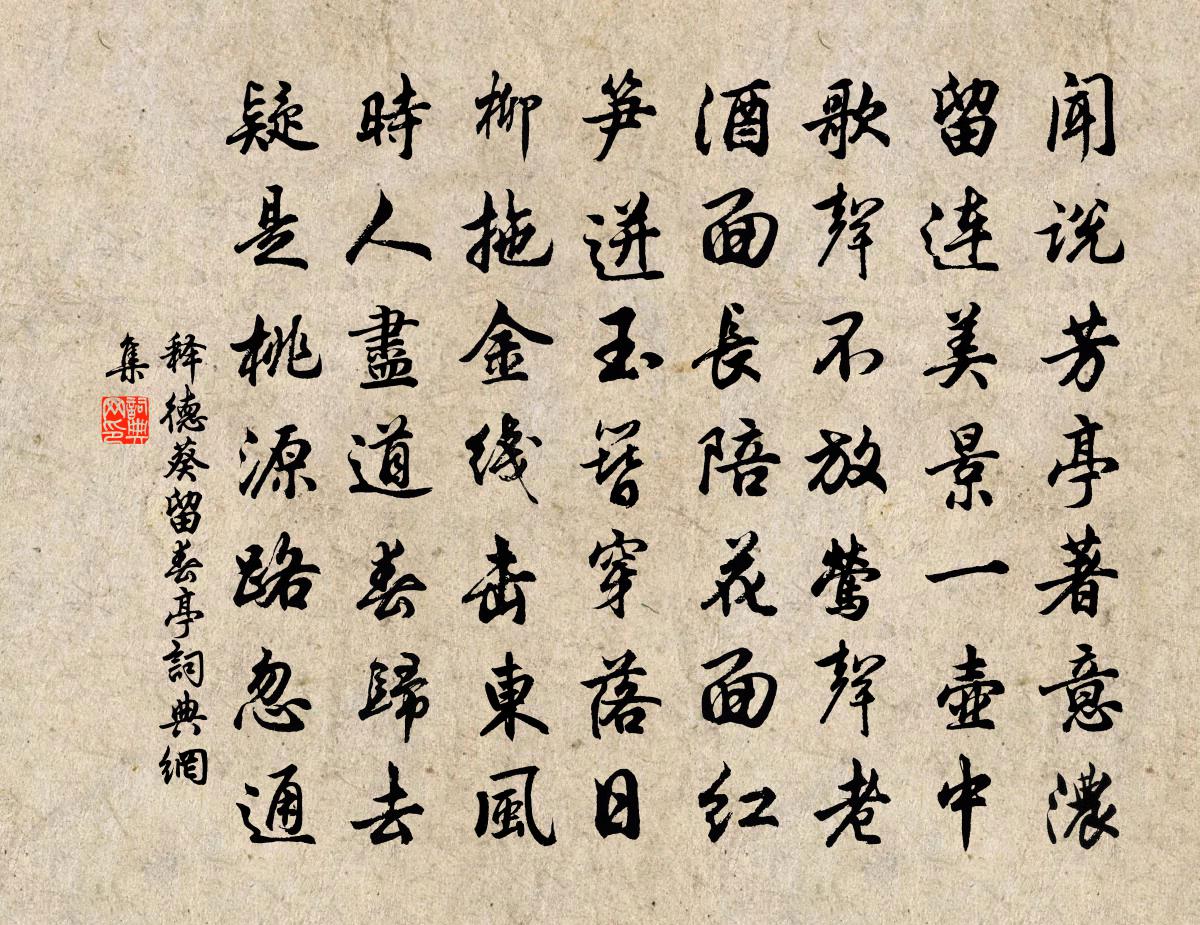 闻说芳亭著意濃
留连美景一壷中
歌聲不放鶯聲老
酒面長陪花面红
笋迸玉簪穿落日
柳拖金线击東風
時人盡道春歸去
疑是桃源路忽通
释德葵留春亭詞典網
集
詞典
网印